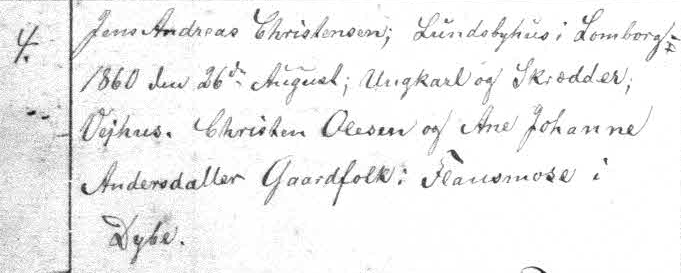 4. Jens Andreas Christensen; Lundsbyhus i Lomborg
1860 den 26de August; Ungkarl og Skrædder;
Vejhus. Christen Olesen og Ane Johanne
Andersdatter Gaardfolk i Flausmose i
Dybe.